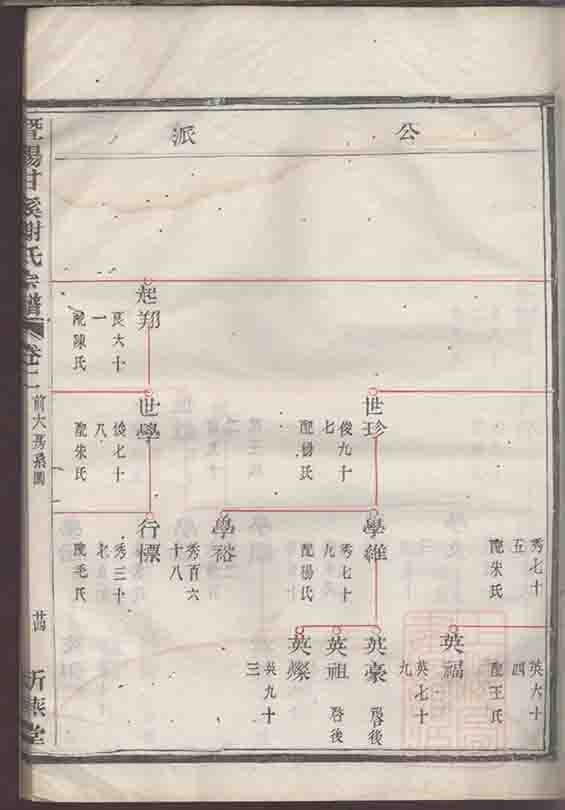 公派
秀七十
五
配朱氏
英六十
四
配王氏
英福
英七十
九
世珍
俊九十
七
配楊氏
學維
秀七十
九
配楊氏
英豪
啓後
英祖
啓後
英燦
英九十
三
學裕
秀百六
十八
起翔
良六十
一
配陳氏
世學
俊七十
八
配朱氏
行標
秀三十
配毛氏
暨陽甘溪謝氏宗譜
卷二
前大房系圖